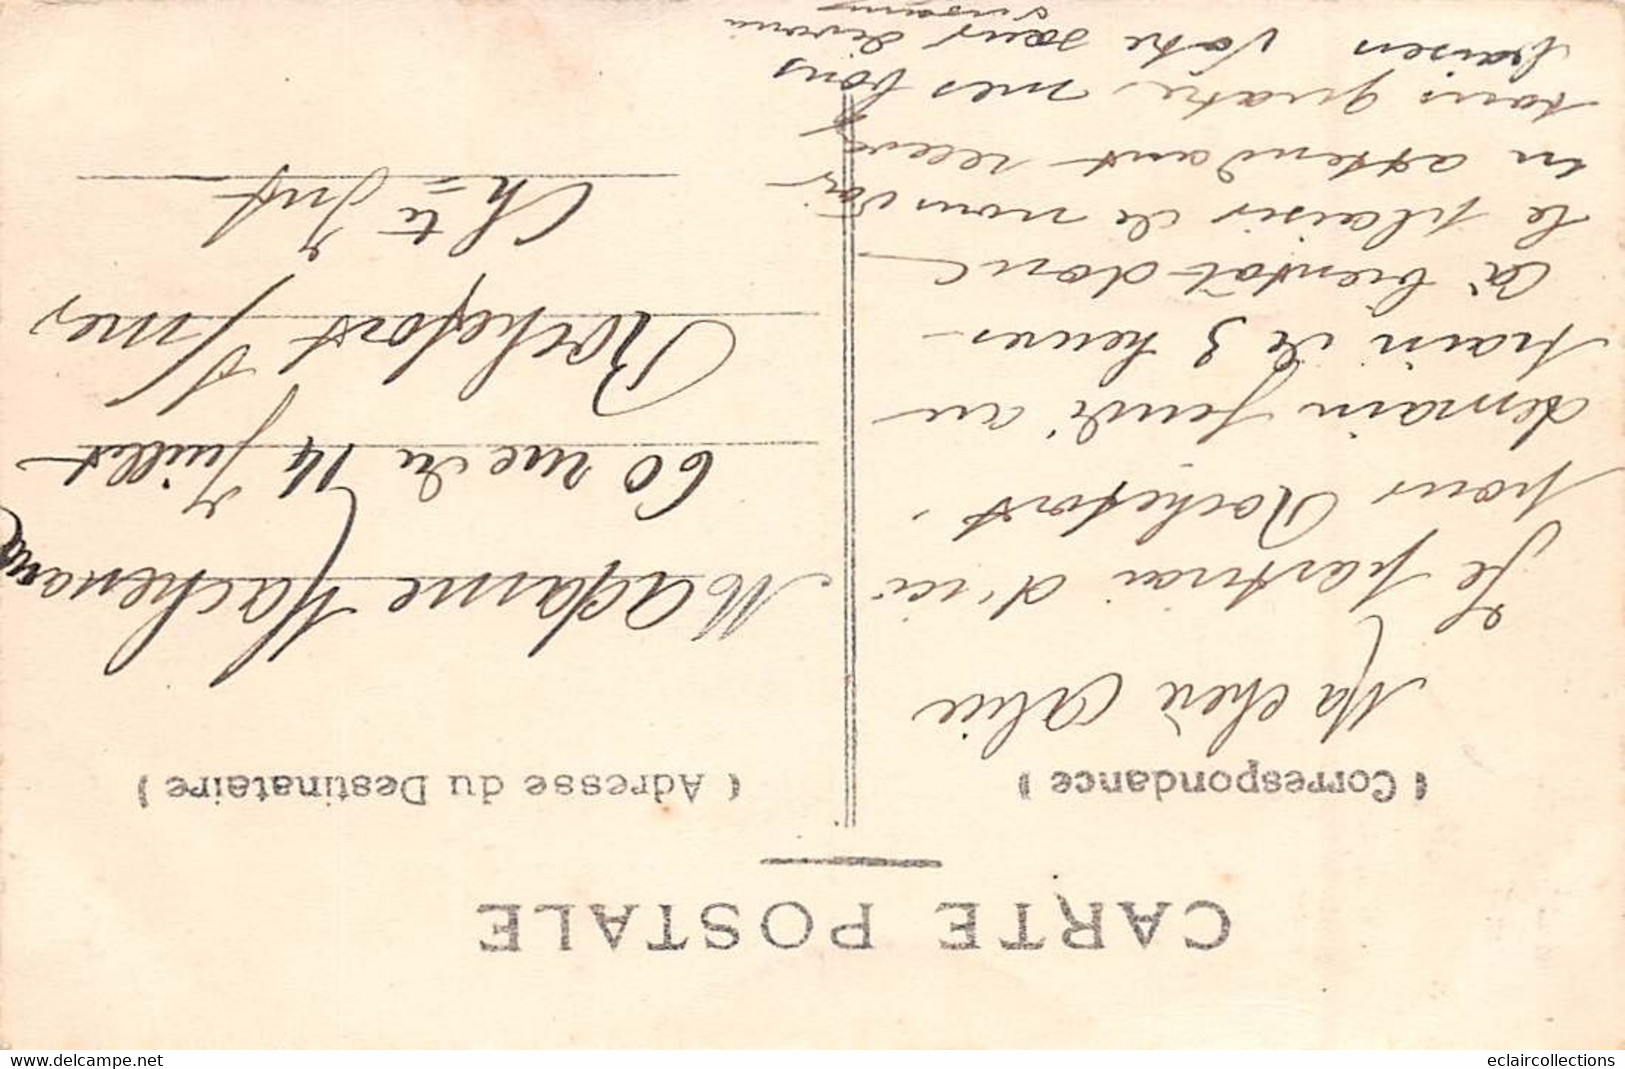 CARTE POSTALE
(Correspondance)
(Adresse du Destinataire)
Ma cher Alice
Je partirai d'ici
pour Rochefort.
demain Jeudi au
train de 3 heures
A bientôt donc
le plaisir de nous voir
En attendant recevez
tous quatre, mes bons
baisers Votre sœur
Madame
60 rue du 14 Juillet
Rochefort s/mer
Ch=te Infre
delcampe.net
eclaircollections